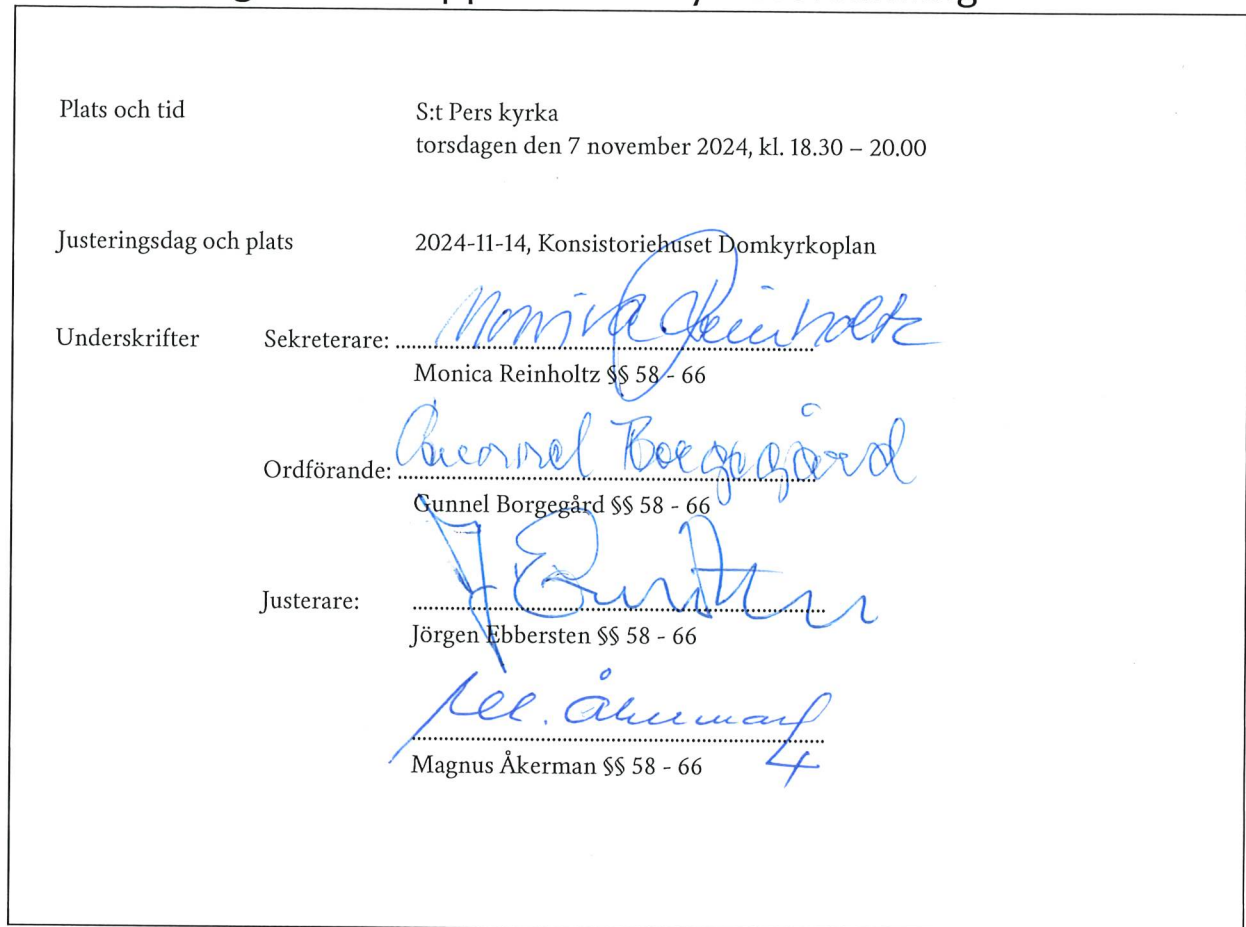 Plats och tid S:t Pers kyrka
torsdagen den 7 november 2024, kl. 18.30 – 20.00
Justeringsdag och plats 2024-11-14, Konsistoriehuset Domkyrkoplan
Underskrifter Sekreterare: Monica Reinholtz
Monica Reinholtz §§ 58 - 66
Ordförande: Gunnel Borgegård
Gunnel Borgegård §§ 58 - 66
Justerare:
Jörgen Ebbersten §§ 58 - 66
M. Åkerman
Magnus Åkerman §§ 58 - 66